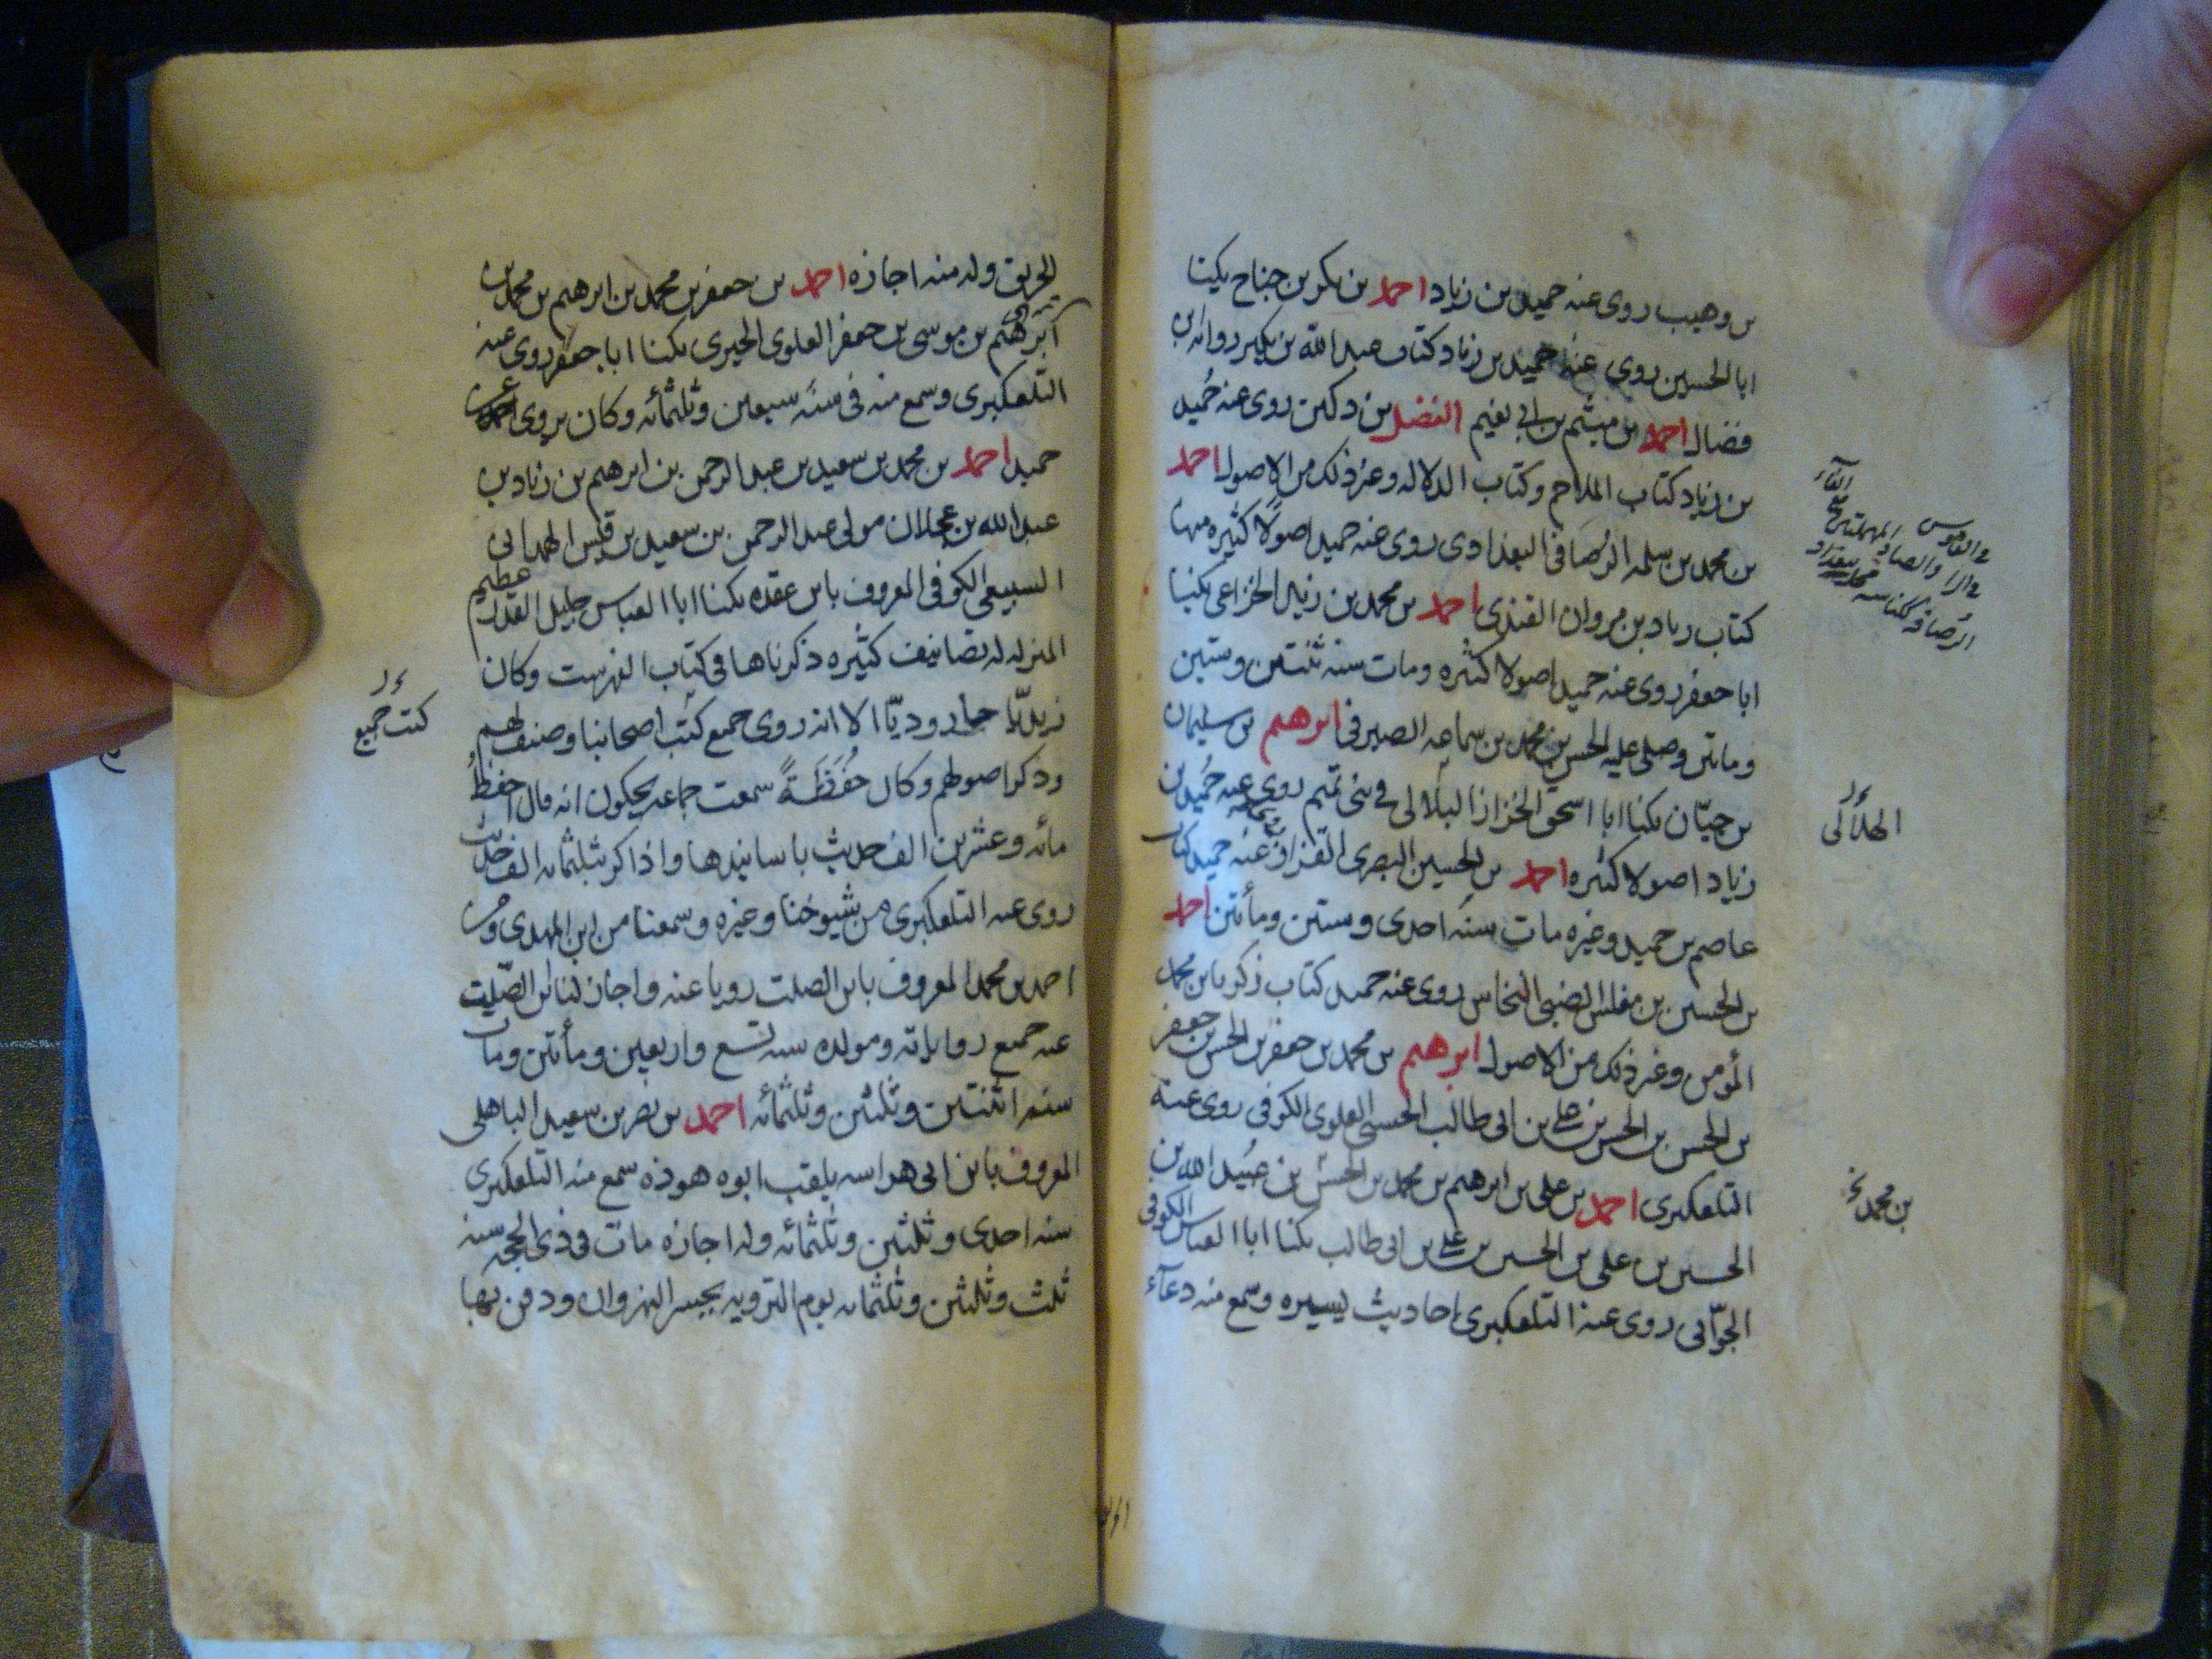 بن وهيب روى عنه حميد بن زياد احمد بن بكر بن جناح يكنا
ابا الحسين روى عنه حميد بن زياد كتاب عبد الله بن بكير رواية ابن
فضال احمد بن ميثم بن ابي نعيم الفضل بن دكين روى عنه حُميد
بن زياد كتاب الملاحم وكتاب الدلاله وغير ذلك من الاصول احمد
بن محمد بن سلمه الرُصافى البغدادى روى عنه حميد اصولاً كثيره منها
كتاب زياد بن مروان القندى احمد بن محمد بن زيد الخزاعى يكنيا
ابا جعفر روى عنه حميد اصولا كثيره ومات سنه ثنتين وستين
وماتين وصلى عليه الحسن بن محمد بن سماعه الصيرفى ابرهيم بن سليمان
بن حيّان يكنا ابا اسحق الخزاز البلالى فى بنى تميم روى عنه حُميد بن
زياد اصولا كثيره احمد بن الحسين البصرى القزاز عنه حميد كتاب
عاصم بن حميد وغيره مات سنه احدى وستين ومأتين احمد
بن الحسين بن مفلس الضبى النخاس روى عنه حميد كتاب زكريا بن محمد
المؤمن وغير ذلك من الاصول ابرهيم بن محمد بن جعفر بن الحسن بن جعفر
بن الحسن بن الحسن بن على بن ابى طالب الحسنى العلوى الكوفى روى عنه
التلعكبرى احمد بن على بن ابرهيم بن محمد بن الحسن بن عبيد الله بن
الحسين بن على بن الحسين بن على بن ابى طالب يكنا ابا العباس الكوفى
الجوّانى روى عنه التلعكبرى احاديث يسيره وسمع منه دعآء
فى القاموس
الرُصافة ككناسه محله ببغداد
الهلالى
بن محمد
الحريق وله منه اجازه احمد بن جعفر بن محمد بن ابرهيم بن محمد بن
ابرهيم بن موسى بن جعفر العلوى الحيرى يكنا ابا جعفر روى عنه
التلعكبرى وسمع منه فى سنه سبعين وثلثمائه وكان يروى عن
حميد احمد بن محمد بن سعيد بن عبد الرحمن بن ابرهيم بن زياد بن
عبد الله بن عجلان مولى عبد الرحمن بن سعيد بن قيس الهمدانى
السبيعى الكوفى المعروف بابن عقده يكنا ابا العباس جليل القدر عظيم
المنزله له تصانيف كثيره ذكرناها فى كتاب الفهرست وكان
زيديّا جاروديّا الا انه روى جميع كتب اصحابنا وصنف لهم
وذكر اصولهم وكان حُفَظَةً سمعت جماعه يحكون انه قال احفظُ
مائه وعشرين الف حديث باسانيدها واذاكر بثلثمائه الف حديث
روى عنه التلعكبرى من شيوخنا وغيره وسمعنا من ابن المهدى ومن
احمد بن محمد المعروف بابن الصلت رويا عنه واجاز لنا ابن الصّلت
عنه جميع رواياته ومولده سنه تسع واربعين ومأتين ومات
سنه اثنتين وثلثين وثلثمائه احمد بن نصر بن سعيد الباهلى
المعروف بابن ابى هراسه يلقب ابوه هوذه سمع منه التلعكبرى
سنه احدى وثلثين وثلثمائه وله اجازه مات فى ذى الحجه سنه
ثلث وثلثين وثلثمائه يوم الترويه بجسر النهروان ودفن بها
كتب جميع